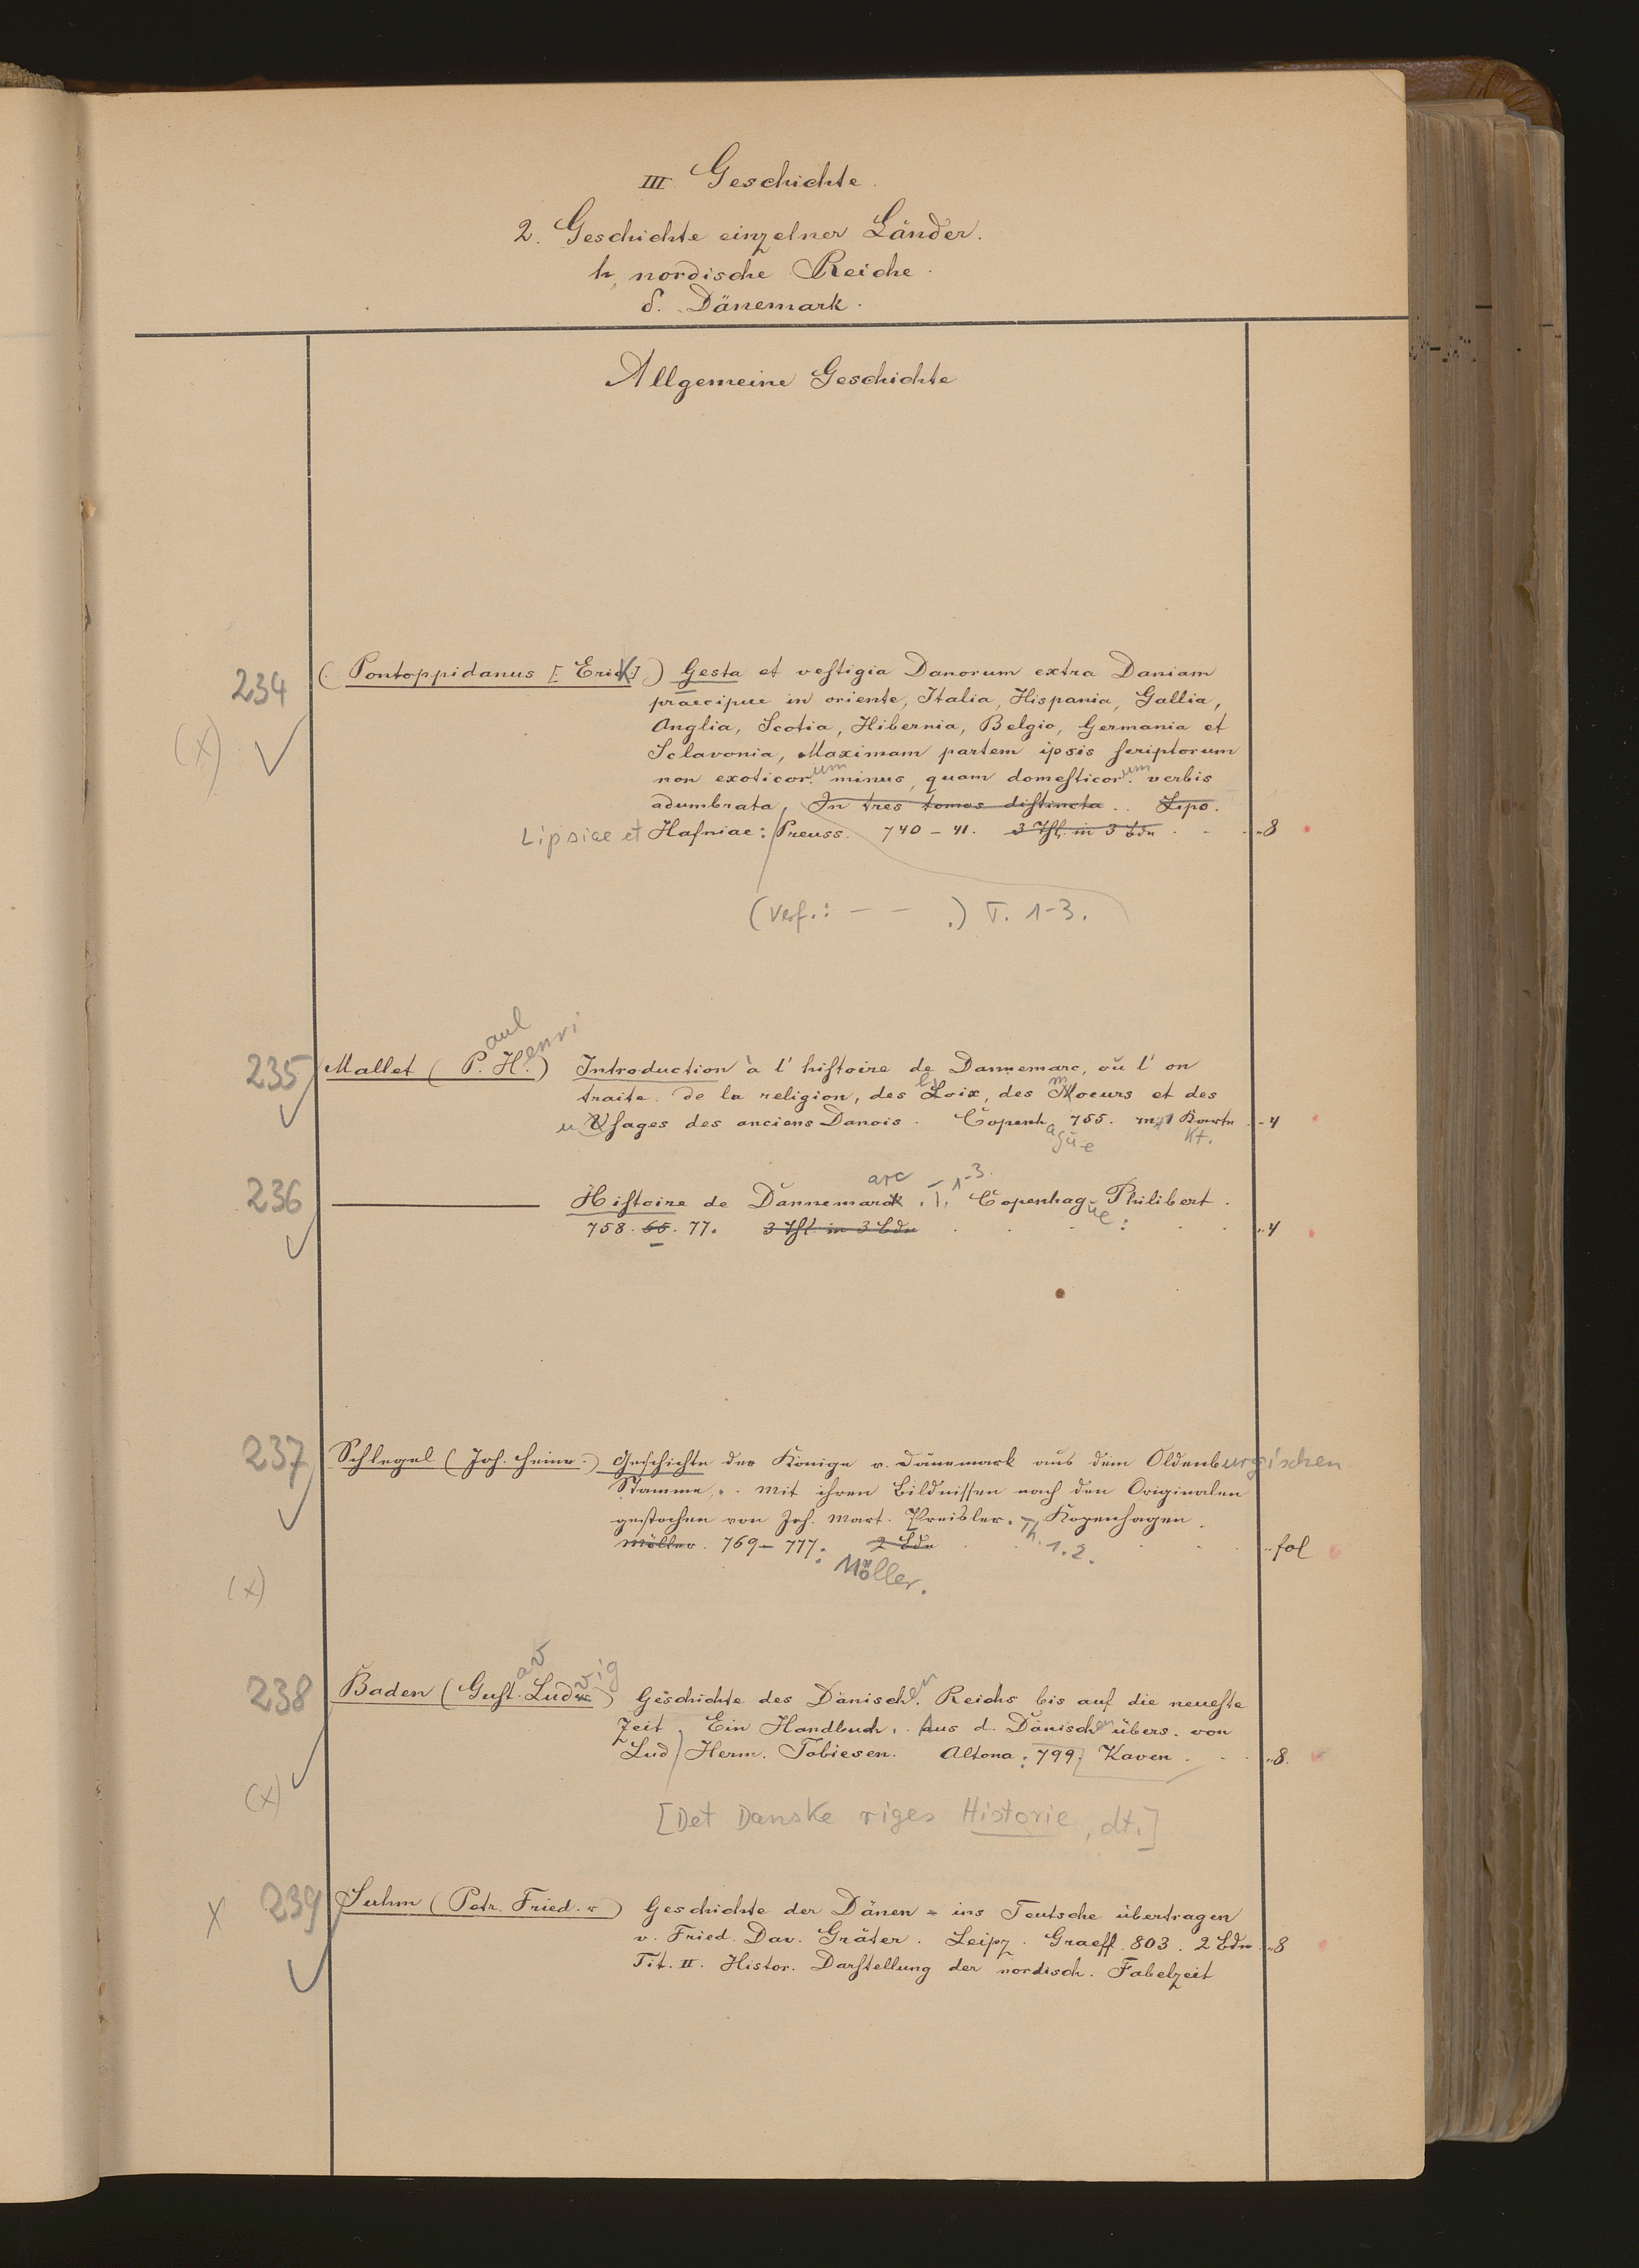 III Geschichte.
2. Geschichte einzelner Länder.
h, nordische Reiche.
δ. Dänemark.
Allgemeine Geschichte
234 (Pontoppidanus [Erik]) Gesta et vestigia Danorum extra Daniam
praecipue in oriente, Italia, Hispania, Gallia,
Anglia, Scotia, Hibernia, Belgio, Germania et
Sclavonia, Maximam partem ipsis scriptorum
non exoticorum minus, quam domesticorum verbis
(x)
adumbrata, In tres tomos distincta .. Lips.
Lipsiae et Hafniae: Preuss. 740-41. 3 Thl. in 3 Bdn . . „8
(Verf.: — — .) T. 1-3.
235 Mallet (Paul Henri) Introduction à l'histoire de Dannemarc, où l'on
traite de la religion, des loix, des moeurs et des
usages des anciens Danois. Copenhague 755. m 1 Karte Kt. „4
236 ——— Histoire de Dannemarc. T. 1-3. Copenhague: Philibert.
758. 65. 77. 3 Thl in 3 Bdn . . . „4
237 Schlegel (Joh. Heinr.) Geschichte der Könige v. Dänemark aus dem Oldenburgischen
Stamme, . mit ihren Bildnissen nach den Originalen
gestochen von Joh. Mart. Preisler. Th. 1.2. Kopenhagen.
Möller. 769-777. 2 Bde . . . „fol
: Möller.
(x)
238 Baden (Gustav Ludwig) Geschichte des Dänischen Reichs bis auf die neueste
Zeit, Ein Handbuch. Aus d. Dänischen übers. von
Lud Herm. Tobiesen. Altona: 799, Kaven . . „8.
(x)
[Det Danske riges Historie, dt.]
x 239 Suhm (Petr. Fried. v) Geschichte der Dänen = ins Teutsche übertragen
v. Fried. Dav. Gräter. Leipz. Graeff. 803. 2 Bdn „8
Tit. II. Histor. Darstellung der nordisch. Fabelzeit